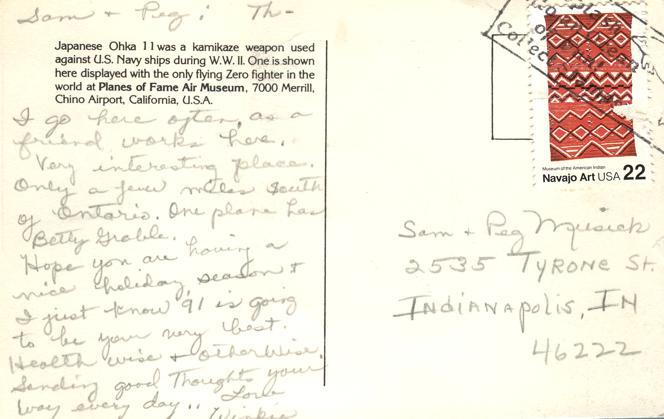 Sam + Peg; Th-
Japanese Ohka 11 was a kamikaze weapon used
against U.S. Navy ships during W.W. II. One is shown
here displayed with the only flying Zero fighter in the
world at Planes of Fame Air Museum, 7000 Merrill,
Chino Airport, California, U.S.A.
I go here often, as a
friend works here.
Very interesting place.
Only a few miles South
of Ontario. One plane has
Betty Grable.
Hope you are having a
nice holiday season +
I just know '91 is going
to be your very best.
Health wise + otherwise.
Sending good Thoughts your
way every day.. Love
Collect
Museum of the American Indian
Navajo Art USA 22
Sam + Peg Musick
2535 TYRONE St.
INDIANAPOLIS, IN
46222